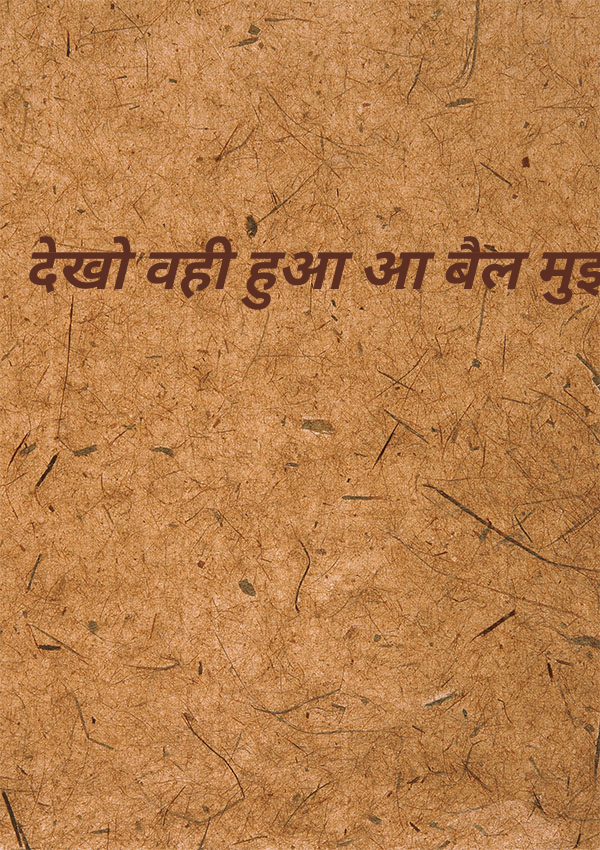 देखो वही हुआ आ बैल